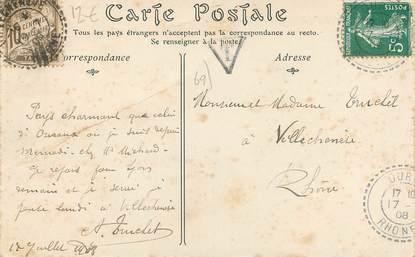 12€
Carte Postale
Tous les pays étrangers n'acceptent pas la correspondance au recto.
Se renseigner à la poste.
Correspondance
Adresse
69)
T
10
POSTES
5c
Pays charmant que celui
d'Ouroux où je suis depuis
mercredi chez Mr Michard
Je repars pour Lyon
demain et je serai
lundi à Villechenève
A. Turchet
17 Juillet 1908
Monsieur et Madame Turchet
à Villechenève
Rhône
OURO
17
17-
08
RHONE